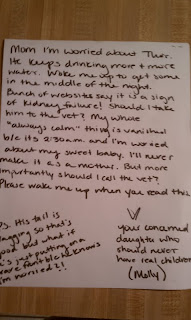 Mom I'm worried about Thor.
He keeps drinking more + more
water. Woke me up to get some
in the middle of the night.
Bunch of websites say it is a sign
of kidney failure! Should I take
him to the vet? My whole
"always calm" thing is vanished
b/c its 2:30am and I'm worried
about my sweet baby. I'll never
make it as a mother. But more
importantly should I call the vet?
Please wake me up when you read this
P.S. His tail is
wagging so that's
good but what if
he's just putting on a
brave front b/c he knows
I'm worried?!
your concerned
daughter who
should never
have real children
(Molly)